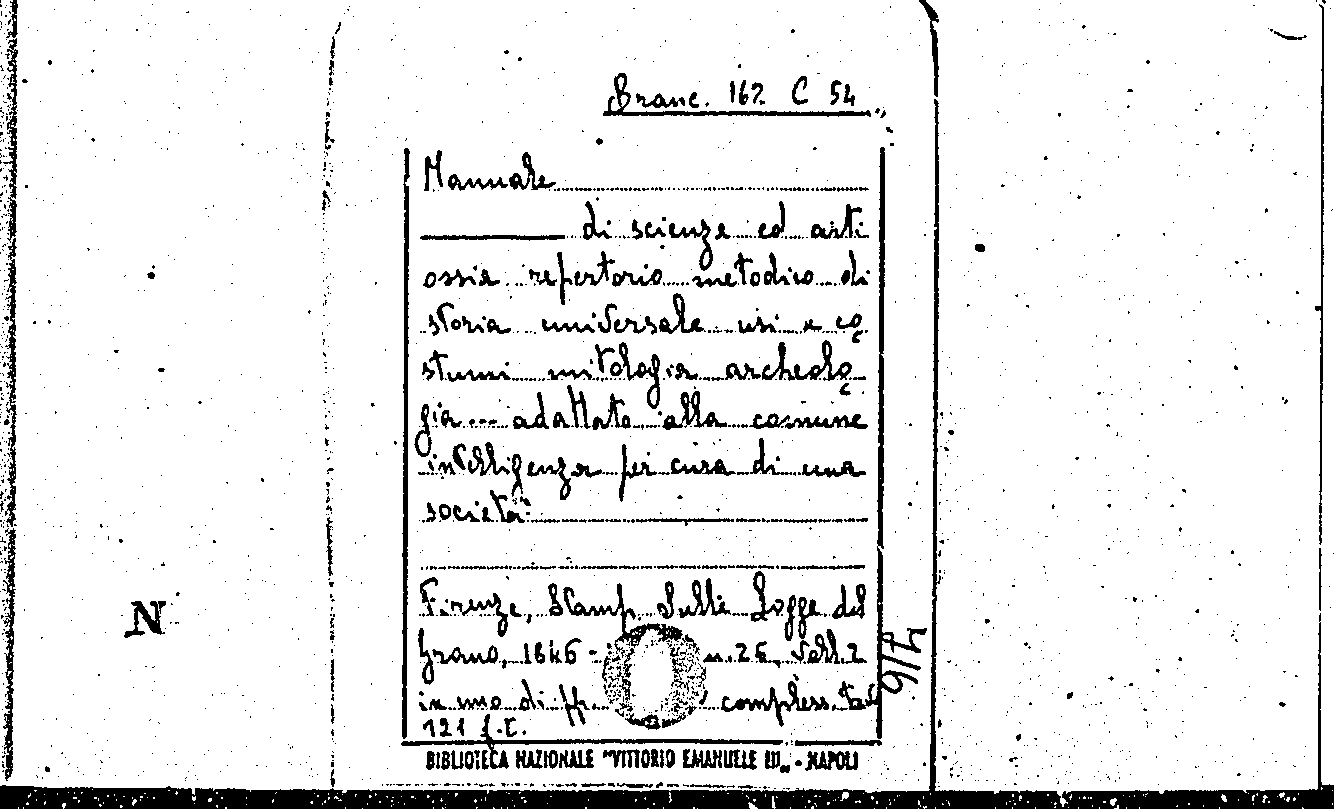 Branc. 167. C 54
Manuale
di scienze ed arti
ossia repertorio metodico di
storia universale usi e co
stumi mitologia archeolo
gia... adattato alla comune
intelligenza per cura di una
società
Firenze, Stamp Sulle Logge del
Grano, 1846 - n. 26, voll. 2
in uno di pp. compless. tav
121 f.t.
7/6
N
BIBLIOTECA NAZIONALE "VITTORIO EMANUELE III" - NAPOLI